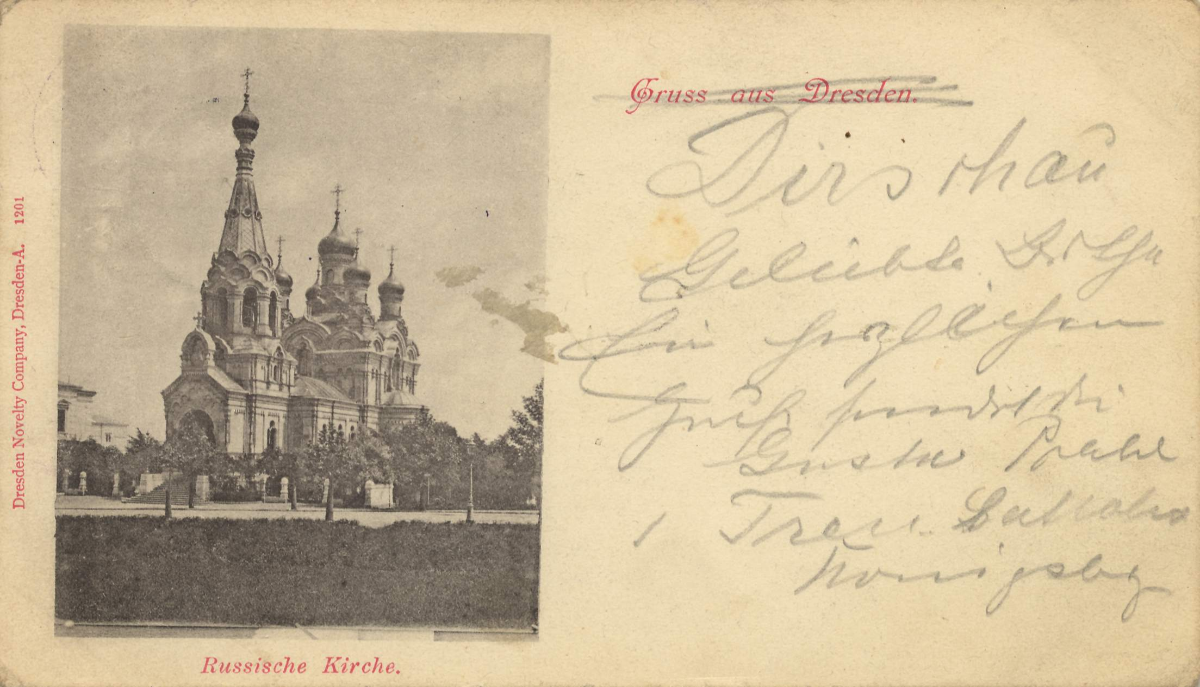 Dresden Novelty Company, Dresden-A. 1201
Russische Kirche.
Gruss aus Dresden.
Dirschau
Geliebte
Ein herzlichen
Gruß sendet dir
Gustav Prahl
1 Tren. Battalio
Königsbg